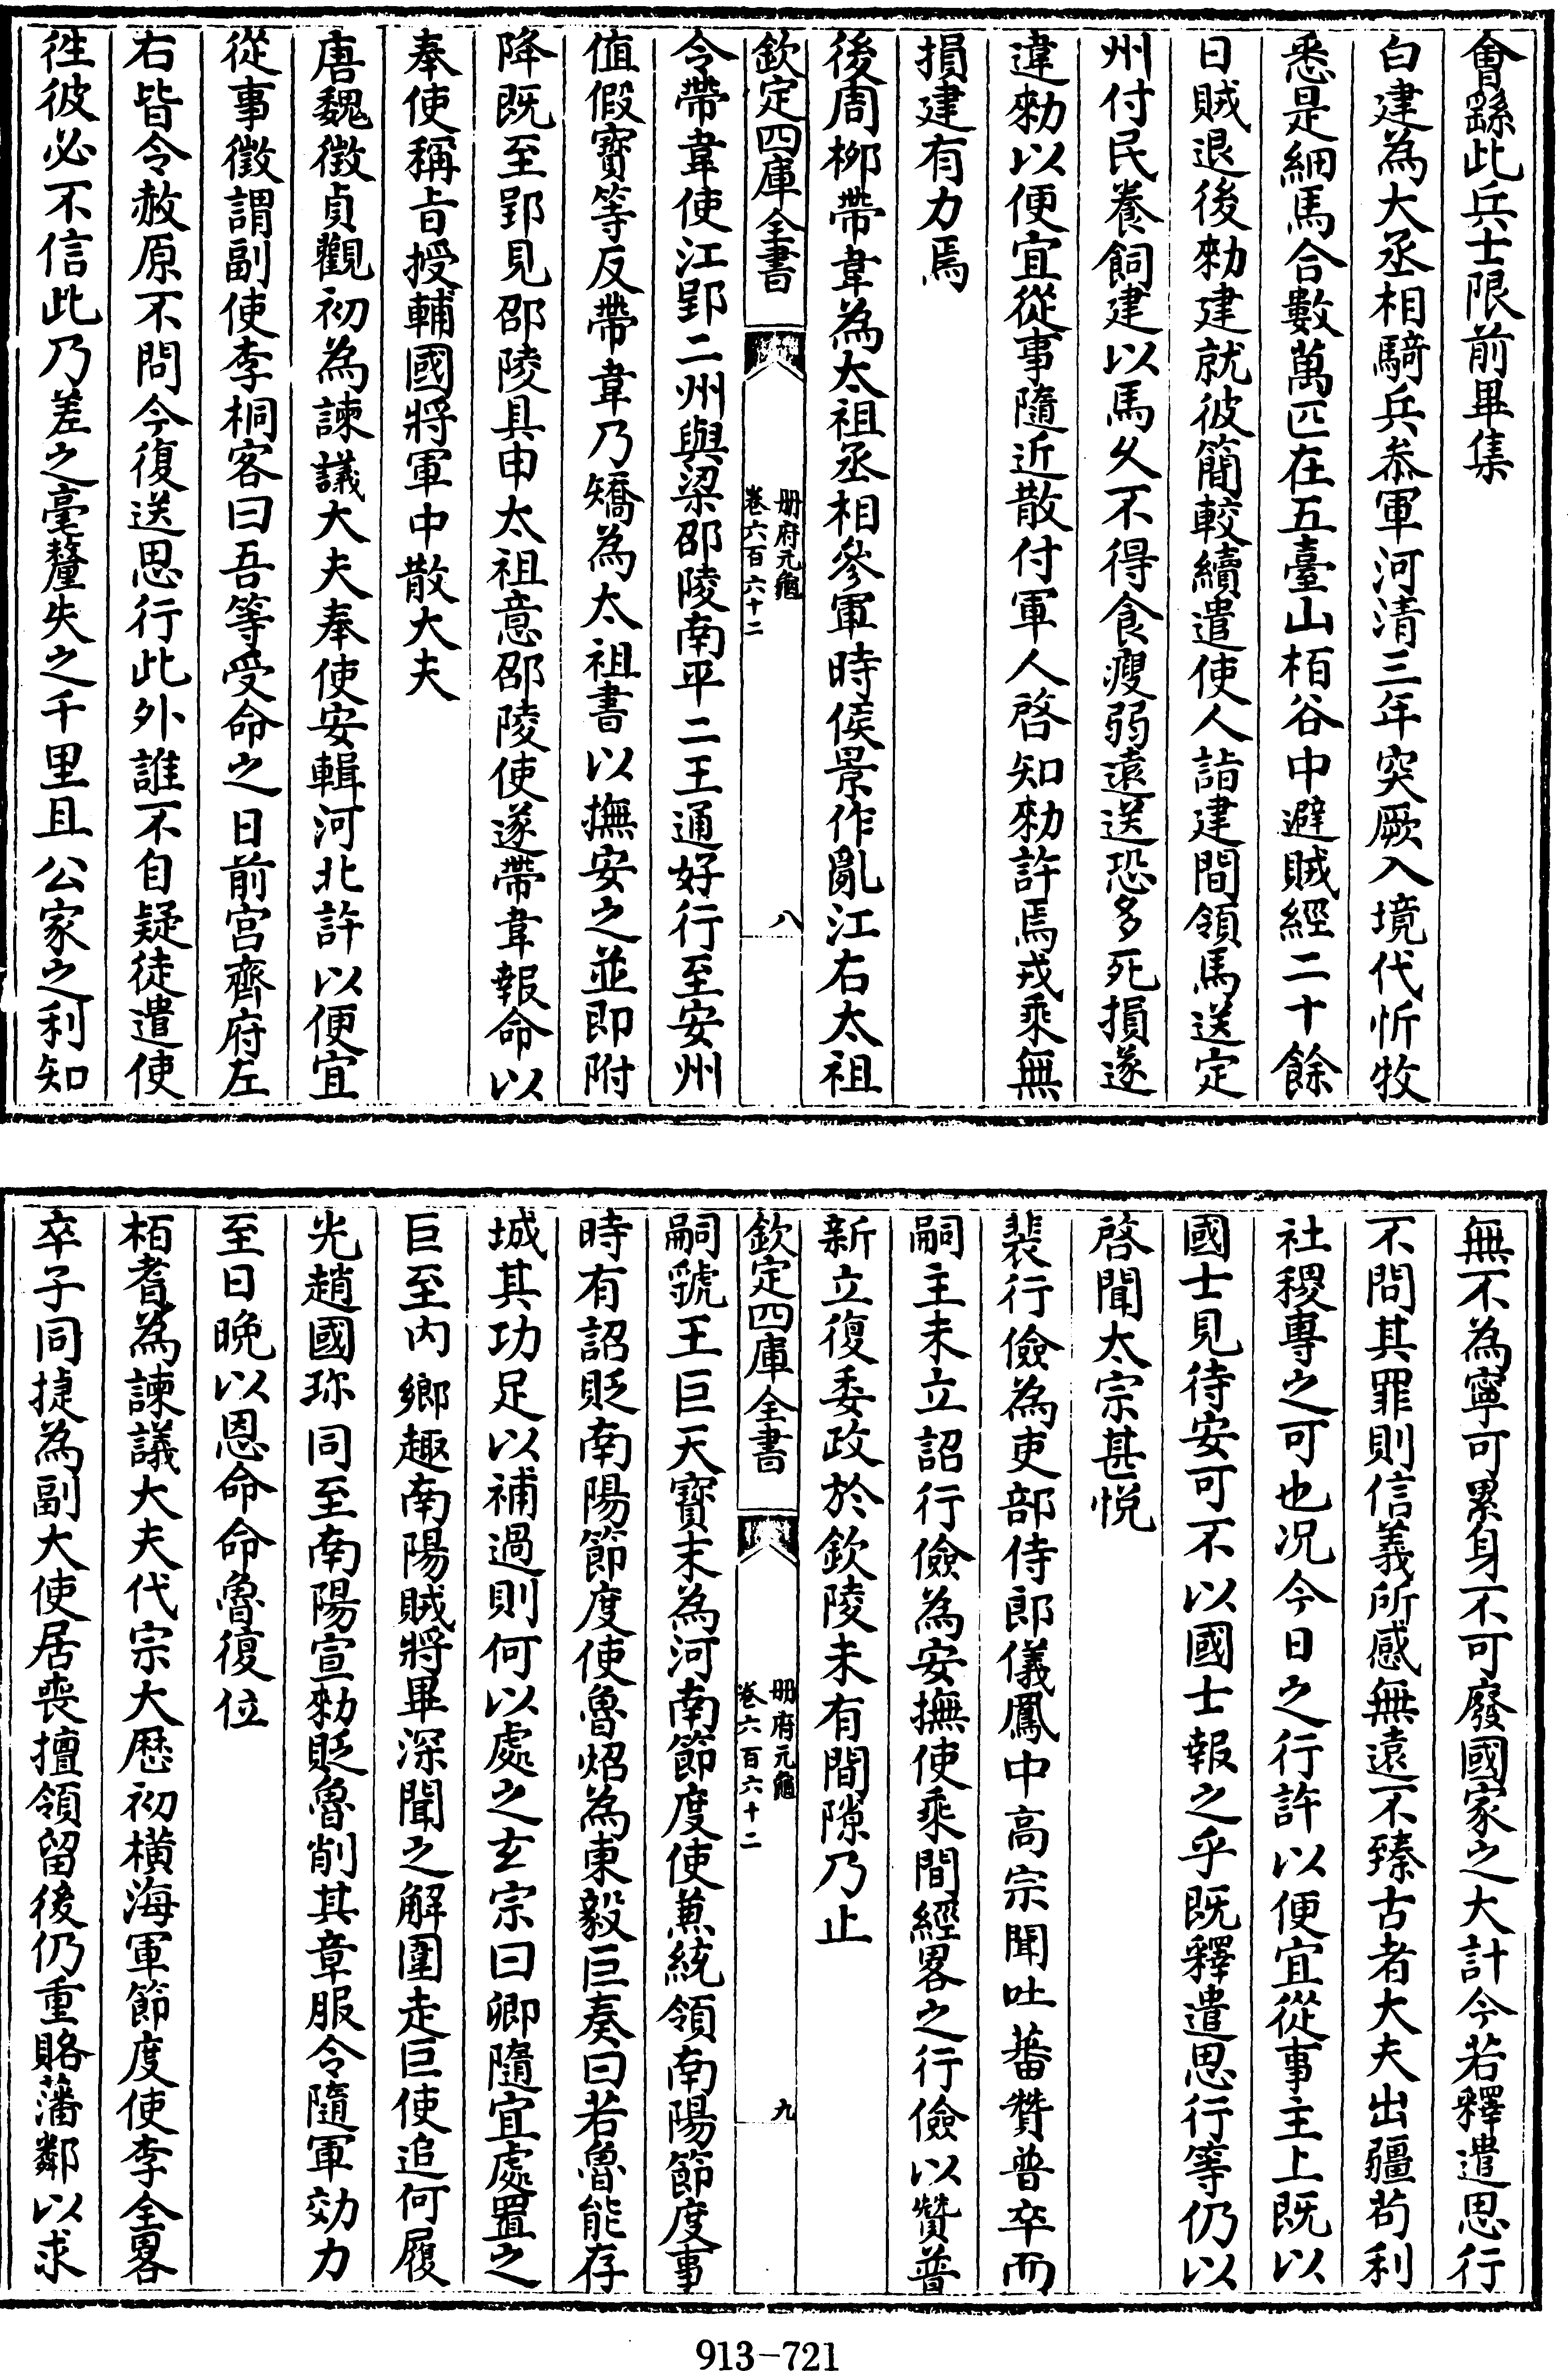 會繇此兵士限前畢集
白建為大丞相騎兵叅軍河清三年突厥入境代忻牧
悉是細馬合數萬匹在五臺山栢谷中避賊經二十餘
日賊退後勑建就彼簡較續遣使人詣建間領馬送定
州付民養飼建以馬久不得食瘦弱遠送恐多死損遂
違勑以便宜從事隨近散付軍人啓知勑許焉戎乘無
損建有力焉
後周栁帶韋為太祖丞相參軍時侯景作亂江右太祖
欽定四庫全書
册府元龜
卷六百六十二
八
令帶韋使江郢二州與梁邵陵南平二王通好行至安州
值假寳等反帶韋乃矯為太祖書以撫安之並即附
降既至郢見邵陵具申太祖意邵陵使遂帶韋報命以
奉使稱旨授輔國將軍中散大夫
唐魏徵貞觀初為諫議大夫奉使安輯河北許以便宜
從事徵謂副使李桐客曰吾等受命之日前宫齊府左
右皆令赦原不問今復送思行此外誰不自疑徒遣使
徃彼必不信此乃差之毫釐失之千里且公家之利知
無不為寧可累身不可廢國家之大計今若釋遣思行
不問其罪則信義所感無遠不臻古者大夫出疆苟利
社稷專之可也况今日之行許以便宜從事主上既以
國士見待安可不以國士報之乎既釋遣思行等仍以
啓聞太宗甚悦
裴行儉為吏部侍郎儀鳳中高宗聞吐蕃贊普卒而
嗣主未立詔行儉為安撫使乘間經畧之行儉以贊普
新立復委政於欽陵未有間隙乃止
欽定四庫全書
册府元龜
卷六百六十二
九
嗣虢王巨天寳末為河南節度使蒠統領南陽節度事
時有詔貶南陽節度使魯炤為東毅巨奏曰若魯能存
城其功足以補過則何以處之玄宗曰卿隨宜處置之
巨至内鄉趣南陽賊將畢深聞之解圍走巨使追何履
光趙國珎同至南陽宣勑貶魯削其章服令隨軍効力
至日晚以恩命命魯復位
栢耆為諫議大夫代宗大厯初横海軍節度使李全畧
卒子同捷為副大使居喪擅領留後仍重賂藩鄰以求
913-721